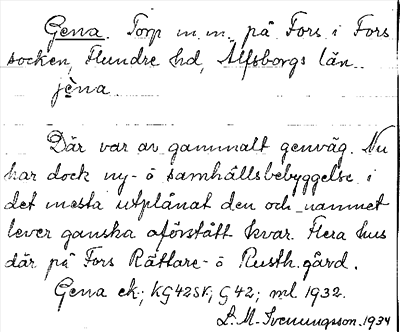 Gena. Torp m.m. på Fors i Fors
socken, Flundre hd, Älfsborgs län.
jèna
Där var av gammalt genväg. Nu
har dock ny- o samhällsbebyggelse i
det mesta utplånat den och namnet
lever ganska oförstått kvar. Flera hus
där på Fors Rättare- o Rusth. gård.
Gena ek; KG42SK; G42; ml 1932.
L. M. Svenungsson. 1934